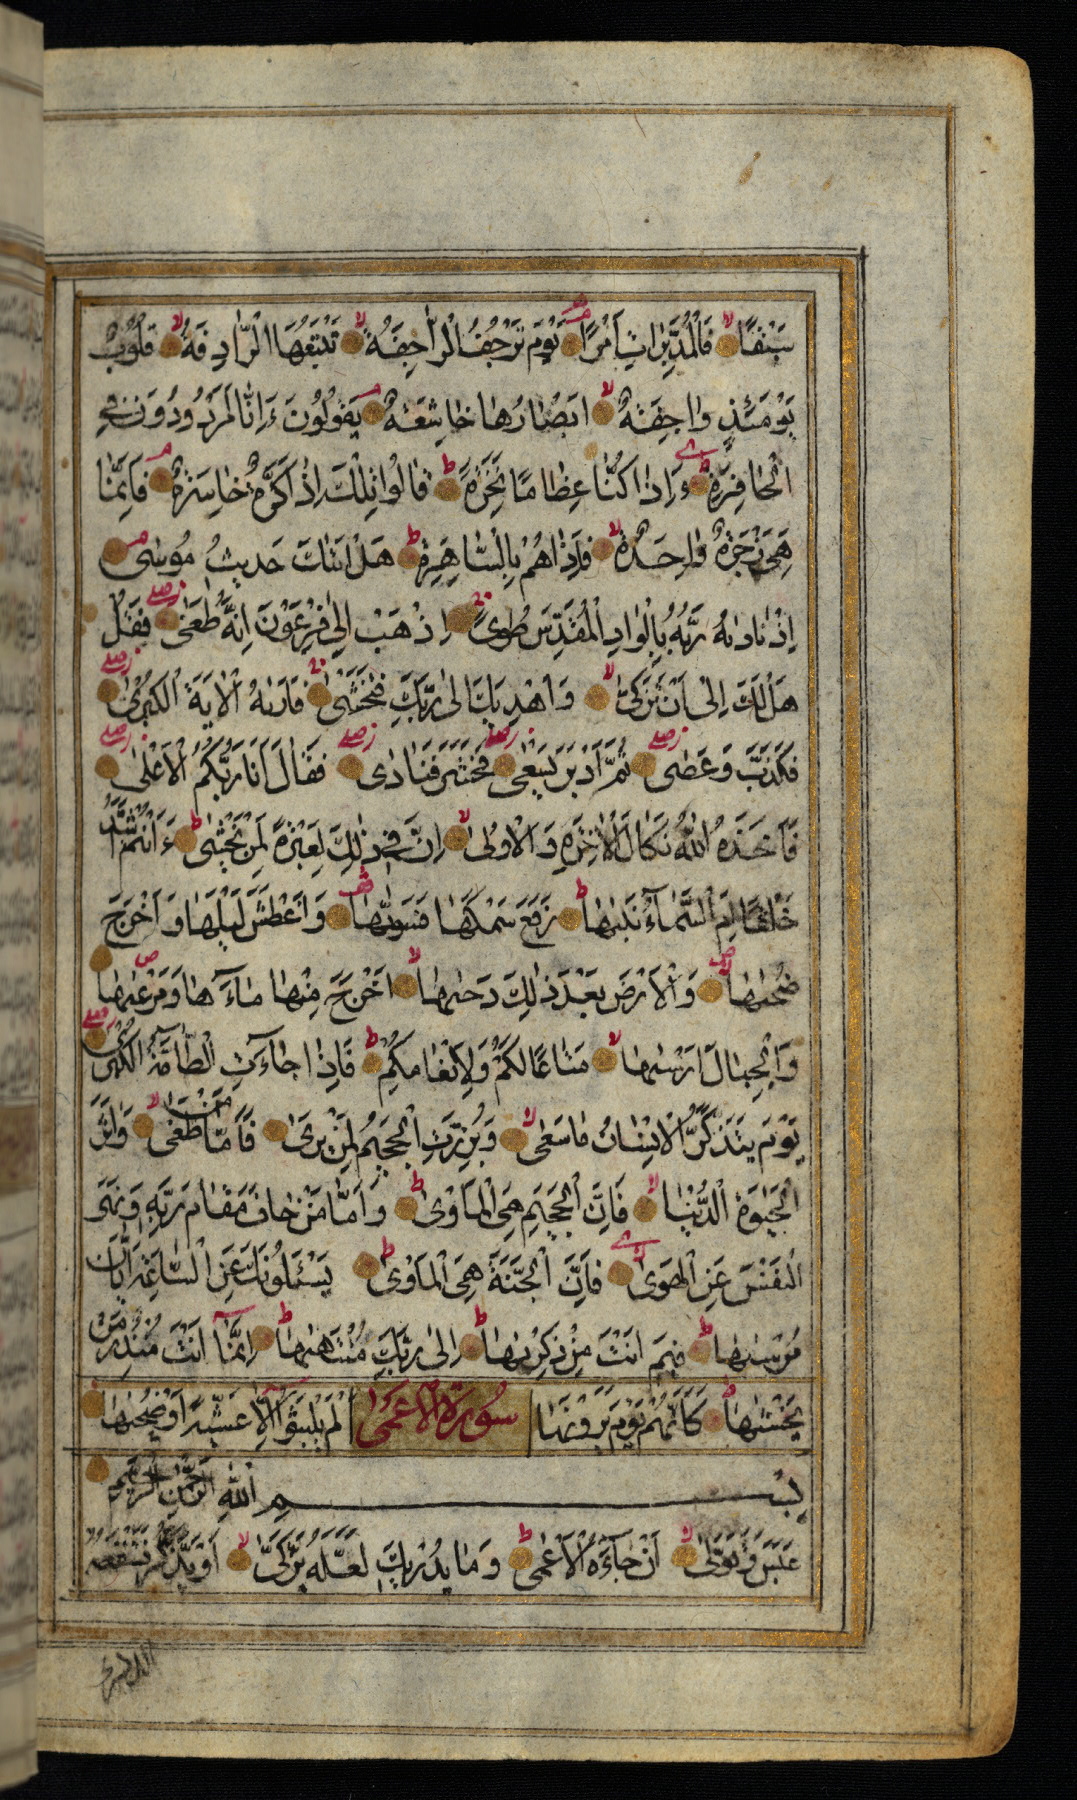 سَبْقًا فَالْمُدَبِّرَاتِ أَمْرًا يَوْمَ تَرْجُفُ الرَّاجِفَةُ تَتْبَعُهَا الرَّادِفَةُ قُلُوبٌ
يَوْمَئِذٍ وَاجِفَةٌ اَبْصَارُهَا خَاشِعَةٌ يَقُولُونَ ءَاِنَّا لَمَرْدُودُونَ فِي
الْحَافِرَةِ ءَاِذَا كُنَّا عِظَامًا نَخِرَةً قَالُوا تِلْكَ اِذًا كَرَّةٌ خَاسِرَةٌ فَاِنَّمَا
هِيَ زَجْرَةٌ وَاحِدَةٌ فَاِذَا هُمْ بِالسَّاهِرَةِ هَلْ اَتٰىكَ حَدِيثُ مُوسٰى
اِذْ نَادٰىهُ رَبُّهُ بِالْوَادِ الْمُقَدَّسِ طُوًى اِذْهَبْ اِلٰى فِرْعَوْنَ اِنَّهُ طَغٰى فَقُلْ
هَلْ لَكَ اِلٰى اَنْ تَزَكّٰى وَاَهْدِيَكَ اِلٰى رَبِّكَ فَتَخْشٰى فَاَرٰىهُ الْاٰيَةَ الْكُبْرٰى
فَكَذَّبَ وَعَصٰى ثُمَّ اَدْبَرَ يَسْعٰى فَحَشَرَ فَنَادٰى فَقَالَ اَنَا رَبُّكُمُ الْاَعْلٰى
فَاَخَذَهُ اللّٰهُ نَكَالَ الْاٰخِرَةِ وَالْاُولٰى اِنَّ فِي ذٰلِكَ لَعِبْرَةً لِمَنْ يَخْشٰى ءَاَنْتُمْ اَشَدُّ
خَلْقًا اَمِ السَّمَآءُ بَنٰىهَا رَفَعَ سَمْكَهَا فَسَوّٰىهَا وَاَغْطَشَ لَيْلَهَا وَاَخْرَجَ
ضُحٰىهَا وَالْاَرْضَ بَعْدَ ذٰلِكَ دَحٰىهَا اَخْرَجَ مِنْهَا مَآءَهَا وَمَرْعٰىهَا
وَالْجِبَالَ اَرْسٰىهَا مَتَاعًا لَكُمْ وَلِاَنْعَامِكُمْ فَاِذَا جَآءَتِ الطَّآمَّةُ الْكُبْرٰى
يَوْمَ يَتَذَكَّرُ الْاِنْسَانُ مَا سَعٰى وَبُرِّزَتِ الْجَحِيمُ لِمَنْ يَرٰى فَاَمَّا مَنْ طَغٰى وَاٰثَرَ
الْحَيٰوةَ الدُّنْيَا فَاِنَّ الْجَحِيمَ هِيَ الْمَاْوٰى وَاَمَّا مَنْ خَافَ مَقَامَ رَبِّهِ وَنَهَى
النَّفْسَ عَنِ الْهَوٰى فَاِنَّ الْجَنَّةَ هِيَ الْمَاْوٰى يَسْئَلُونَكَ عَنِ السَّاعَةِ اَيَّانَ
مُرْسٰىهَا فِيمَ اَنْتَ مِنْ ذِكْرٰىهَا اِلٰى رَبِّكَ مُنْتَهٰىهَا اِنَّمَا اَنْتَ مُنْذِرُ مَنْ
يَخْشٰىهَا كَاَنَّهُمْ يَوْمَ يَرَوْنَهَا سُورَةُ الْاَعْمٰى لَمْ يَلْبَثُوا اِلَّا عَشِيَّةً اَوْ ضُحٰىهَا
بِسْمِ اللّٰهِ الرَّحْمٰنِ الرَّحِيمِ
عَبَسَ وَتَوَلّٰى اَنْ جَآءَهُ الْاَعْمٰى وَمَا يُدْرِيكَ لَعَلَّهُ يَزَّكّٰى اَوْ يَذَّكَّرُ فَتَنْفَعَهُ
الذكرى